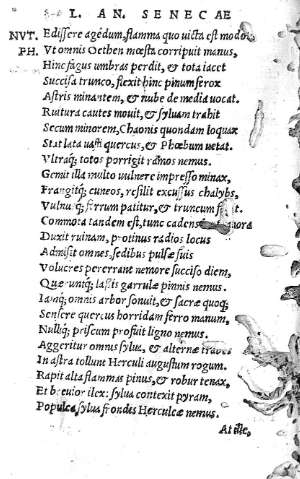 L. AN. SENECAE
NVT. Edissere agedum, flamma quo victa est modo.
PH. Vt omnis Oethen mœsta corripuit manus,
Hinc fagus umbras perdit, & tota iacet
Succisa trunco, flexit hinc pinum ferox
Astris minantem, & nube de media uocat.
Ruitura cautes mouit, & syluam trahit
Secum minorem, Chaonis quondam loquax
Stat lata uasti quercus, & Phœbum uetat.
Vltraq; totos porrigit ramos nemus.
Gemit illa multo uulnere impresso minax,
Frangitq; cuneos, resilit excussus chalybs,
Vulnusq; ferrum patitur, & truncum
Commota tandem est, tunc cadens
Duxit ruinam, protinus radios locus
Admisit omnes, sedibus pulsæ suis
Volucres pererrant nemore succiso diem,
Quæruntq; lassis garrulæ pinnis nemus.
Iamq; omnis arbor sonuit, & sacræ quoq;
Sensere quercus horridam ferro manum,
Nulliq; priscum profuit ligno nemus.
Aggeritur omnis sylua, & alternæ trabes
In astra tollunt Herculi augustum rogum.
Rapit alta flammas pinus, & robur tenax,
Et breuior ilex: sylua contexit pyram,
Populea sylua frondes Herculeæ nemus.
At ille,